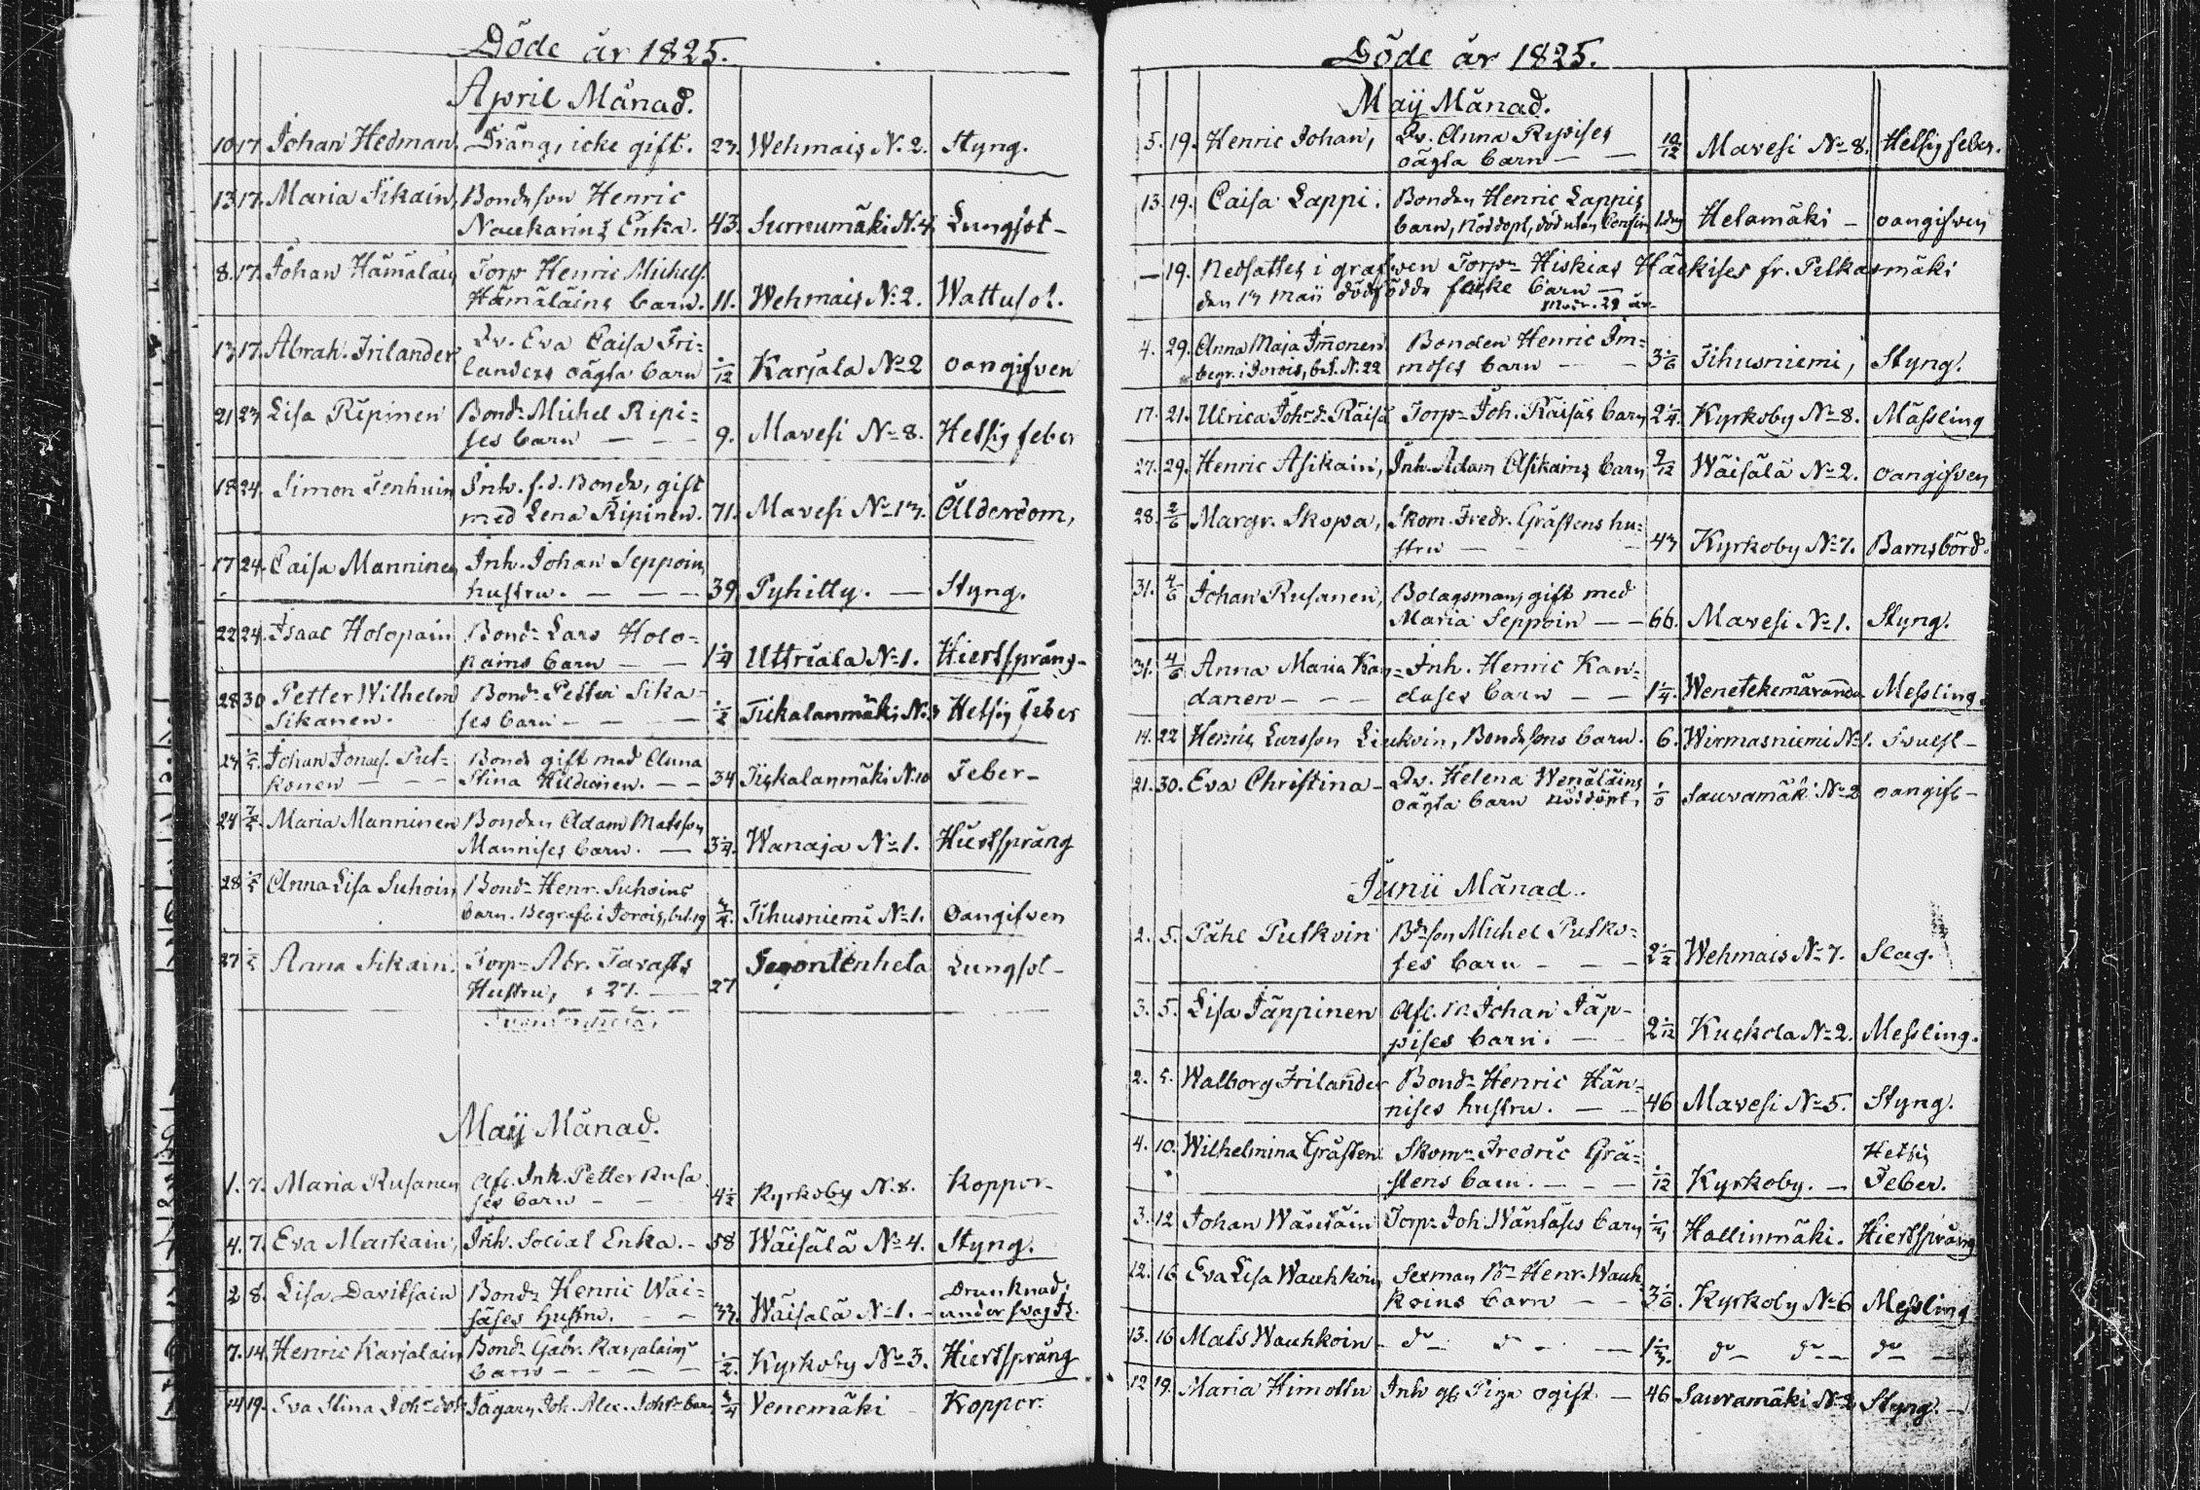 Döde år 1825.
April Månad.
10 17 Johan Hedman. Dräng, icke gift. 23. Wehmais N. 2. Styng.
13 17. Maria Sikain, Bondeson Henric
Naukarins Enka. 43. Surnumäki N. 4 Lungsot-
8. 17. Johan Hämäläin Torp. Henric Michels.
Hämäläins barn. 11. Wehmais No 2. Wattusot.
13 17. Abrah. Frilander Qv. Eva Caisa Fri=
landers oägta barn 1/12 Karjala No 2 oangifven
21 23 Lisa Ripinen Bond. Michel Ripi=
ses barn - - - 9. Mavesi No 8. Hetsig feber
18 24. Simon Tenhuin Inh. f.d. Bonde, gift
med Lena Ripinen. 71. Mavesi No 13. Ålderdom,
17 24. Caisa Manninen Inh. Johan Seppoin
hustru. - - - 39. Pyhitty. - Styng.
22 24. Isaac Holopain Bond. Lars Holo=
pains barn - - 1 1/4 Uttriala No 1. Hiertsprång-
28 30 Petter Wilhelm Bond. Petter Sika=
Sikanen. ses barn - - - 1/2 Tiikalanmäki N. Hetsig feber
Johan Jonaes. Put= Bond. gift med Anna
konen - - - Stina - - 34 Tiskalanmäki N. 10 Feber-
24 Maria Manninen Bonden Adam Matsson
Mannises barn. - 3 1/4. Wanaja No 1. Hiertsprång
28 Anna Lisa Suhoin, Bond. Henr. Suhoins
barn. Begrafs i Jorois, bet. 19 3/4. Tihusniemi No 1. Oangifven
27 Anna Sikain. Torp. Abr. Tavasts
Hustru, 27. - 27 Lungsot-
May Månad.
1. 7. Maria Rusanen Afl. Inh. Petter Rusa
ses barn - - 4 1/2 Kyrkoby N. 8. Koppor-
4. 7. Eva Maskain, Inh. Social Enka. - 58 Wäisälä No 4. Styng.
2 8. Lisa Davitsain Bond. Henric Wäi=
säses hustru. - - 33. Wäisälä No 1. - Drunknad,
7. 14. Henric Karjalain Bond. Gabr. Karjalains
barn - - - - 1/2. Kyrkoby No 3. Hiertsprång
14 19. Eva Stina Joh. dotr Jägarn Joh. Alex. Johs. barn 3/4 Venemäki Koppor.
Döde år 1825.
Maij Månad.
5. 19. Henric Johan, Qv. Anna Ripises
oägta barn - - 10/12 Mavesi No 8. Hetsig feber.
13. 19. Caisa Lappi. Bonden Henric Lappis
barn, nöddöpt, död utan 1 dag Helamäki - oangifven
- 19. Nedsattes i grafven Torp. Hiskias fr. Pilkasmäki
den 13 Maij dödfödde flicke barn -
modr. 29 år-
4. 29. Anna Maja Immonen Bonden Henric Im=
begr. i Jorois, bet. N. 22 moses barn - 3 1/6 Tihusniemi, Styng.
17. 21. Ulrica Joh. d. Räisä Torp. Joh. Räisäs barn 2 1/4. Kyrkoby No 8. Mässling
27. 29. Henric Asikain, Inh. Adam Asikains barn 9/12 Wäisälä No 2. oangifven
28. 2/6 Margr. Skopa, Skom. Fredr. Gråstens hu=
stru - - - 43 Kyrkoby No 7. Barnsbörd.
31. 4/6 Johan Rusanen, Bolagsman, gift med
Maria Seppoin - - 66. Mavesi No 1. Styng.
31. 4/6 Anna Maria Kan= Inh. Henric Kan=
danen - - - dases barn - - 1 1/4. Messling.
14. 22 Henric Larsson Liukoin, Bondesons barn. 6. Wirmasniemi No 1.
21. 30. Eva Christina - Qv. Helena Wenäläins
oägta barn nöddöpt, Sauvamäki No 2 oangifv-
Junii Månad.
2. 5. Påhl Putkoin Bdeson Michel Putko=
ses barn - - - 2 1/2 Wehmais No 7. Slag.
3. 5. Lisa Jäppinen Afl. Johan Jäp-
pises barn. - - 2 1/12 Kuckola No 2. Messling.
2. 5. Walborg Frilander Bond. Henric Hän=
nises hustru. - - 46 Mavesi No 5. Styng.
4. 10. Wilhelmina Gråsten Skom. Fredric Grå= Hetsig
stens barn. - - - 1/12 Kyrkoby. - Feber.
3. 12 Johan Wänttäin Torp. Joh. Wäntäses barn Hallinmäki. Hiertsprång
12. 16 Eva Lisa Wauhkoin Sexman Bn. Henr. Wauh
koins barn - - 3 1/6. Kyrkoby No 6 Messling
13. 16 Mats Wauhkoin - do do - - do do do -
12 19. Maria Himottu Inh. gb. Piga ogift - 46 Sauvamäki No 2 Styng. -